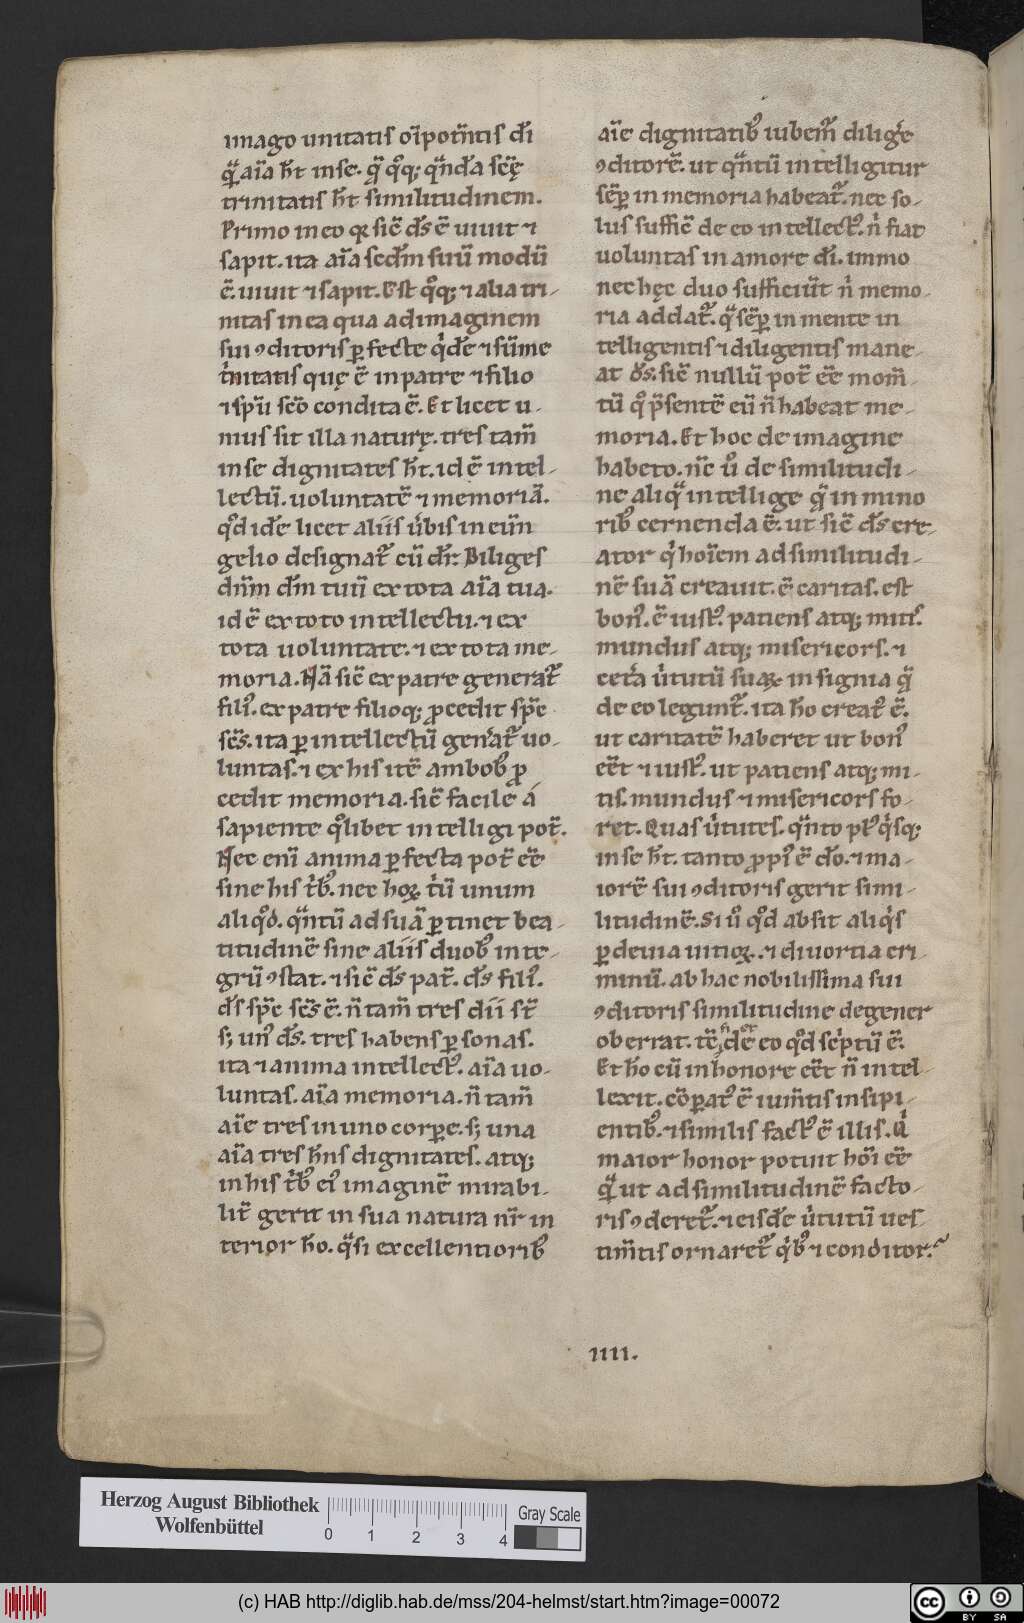 imago unitatis oı̅potn̅tis dı̅
qua̅ aı̅a h̅t in se. qua̅ qͦq; qua̅nda̅ sc̅ę
trinitatis h̅t similitudinem.
Primo in eo qꝛ sic̅ ds̅ e̅ uiuit ⁊
sapit. ita aı̅a sc̅dm suu̅ modu̅
e̅. uiuit ⁊ sapit. Est qͦq; ⁊ alia tri-
nitas in ea qua ad imaginem
sui ꝯditoris ꝑfecte qͥde̅ ⁊ su̅me
tͥnitatis quę e̅ in patre ⁊ filio
⁊ sp̅u sc̅o condita e̅. Et licet u-
nius sit illa naturę. tres tam̅
in se dignitates h̅t. id e̅ intel-
lectu̅. uoluntate̅ ⁊ memoria̅.
qͦd ide̅ licet aliis u̍bis in eu̅n
gelio designat᷑ cu̅ dr̅: Diliges
dn̅m dm̅ tuu̅ ex tota aı̅a tua.
id e̅ ex toto intellectu. ⁊ ex
tota uoluntate. ⁊ ex tota me-
moria. Na̅ sic̅ ex patre generat᷑
filiꝰ. ex patre filioq; ꝓcedit sp̅c
sc̅s. ita ꝑ intellectu̅ gen̍at᷑ uo-
luntas. ⁊ ex his ite̅ ambobꝰ ꝓ
cedit memoria. sic̅ facile á
sapiente qͦlibet intelligi pot̅.
Nec eni̅ anima ꝑfecta pot̅ ee̅
sine his tͥbꝰ. nec hoꝝ tͥu̅ unum
aliqͦd. qua̅ntu̅ ad sua̅ ꝑtinet bea-
titudine̅ sine aliis duobꝰ inte-
gru̅ ꝯstat. ⁊ sic̅ ds̅ pat̅. ds̅ filiꝰ.
ds̅ sp̅c sc̅s e̅. n̅ tam̅ tres dii st̅
s; unꝰ ds̅. tres habens ꝑsonas.
ita ⁊ anima intellectꝰ. aı̅a uo-
luntas. aı̅a memoria. n̅ tam̅
aı̅e tres in uno corꝑe. s; una
aı̅a tres hn̅s dignitates. atq;
in his tͥbꝰ eiꝰ imagine̅ mirabi-
lit̅ gerit in sua natura nr̅ in
terior ho̅. qͣsi excellentioribꝰ
aı̅e dignitatibꝰ iubem᷑ dilig̍e
ꝯditore̅. ut qua̅ntu̅ intelligitur
se̅ꝑ in memoria habeat᷑. nec so-
lus suffic̅ de eo intellectꝰ. nͥ fiat
uoluntas in amore dı̅. immo
nec hęc duo sufficiu̅t nͥ memo-
ria addat᷑. qͣ se̅ꝑ in mente in
telligentis ⁊ diligentis mane-
at ds̅. sic̅ nullu̅ pot̅ ee̅ mom̅-
tu̅ qͦ p̅sente̅ eu̅ n̅ habeat me-
moria. Et hoc de imagine
habeto. nc̅ uͦ de similitudi-
ne aliqͣ intellige qͣ in mino
ribꝰ cernenda e̅. ut sic̅ ds̅ cre-
ator qͥ hoı̅em ad similitudi-
ne̅ sua̅ creauit. e̅ caritas. est
bonꝰ. e̅ iustꝰ. patiens atq; mitis.
mundus atq; misericors. ⁊
cet̍a u̍tutu̅ suaꝝ insignia qͣ
de eo legunt᷑. ita ho̅ creatꝰ e̅.
ut caritate̅ haberet ut bonꝰ
ee̅t ⁊ iustꝰ. ut patiens atq; mi-
tis. mundus ⁊ misericors fo-
ret. Quas u̍tutes. qua̅nto plꝰ qͥsq;
in se h̅t. tanto ꝓpiꝰ e̅ do̅. ⁊ ma-
iore̅ sui ꝯditoris gerit simi-
litudine̅. Si uͦ qͦd absit aliqͥs
ꝑ deuia uitioꝝ. ⁊ diuortia cri-
minu̅. ab hac nobilissima sui
ꝯditoris similitudine degener
oberrat. te̅ de̅ eo qͦd scͥptu̅ e̅.
Et ho̅ cu̅ in honore ee̅t n̅ intel-
lexit. co̅ꝑatꝰ e̅ ium̅tis insipi-
entibꝰ. ⁊ similis factꝰ e̅ illis. Qͥ
maior honor potuit hoı̅ ee̅
qua̅ ut ad similitudine̅ facto-
ris ꝯderet᷑. ⁊ eisde̅ u̍tutu̅ ues-
tim̅tis ornaret᷑ qͥbꝰ ⁊ conditor.
IIII.
Herzog August Bibliothek
Wolfenbüttel
0 1 2 3 4
Gray Scale
(c) HAB http://diglib.hab.de/mss/204-helmst/start.htm?image=00072
cc BY SA